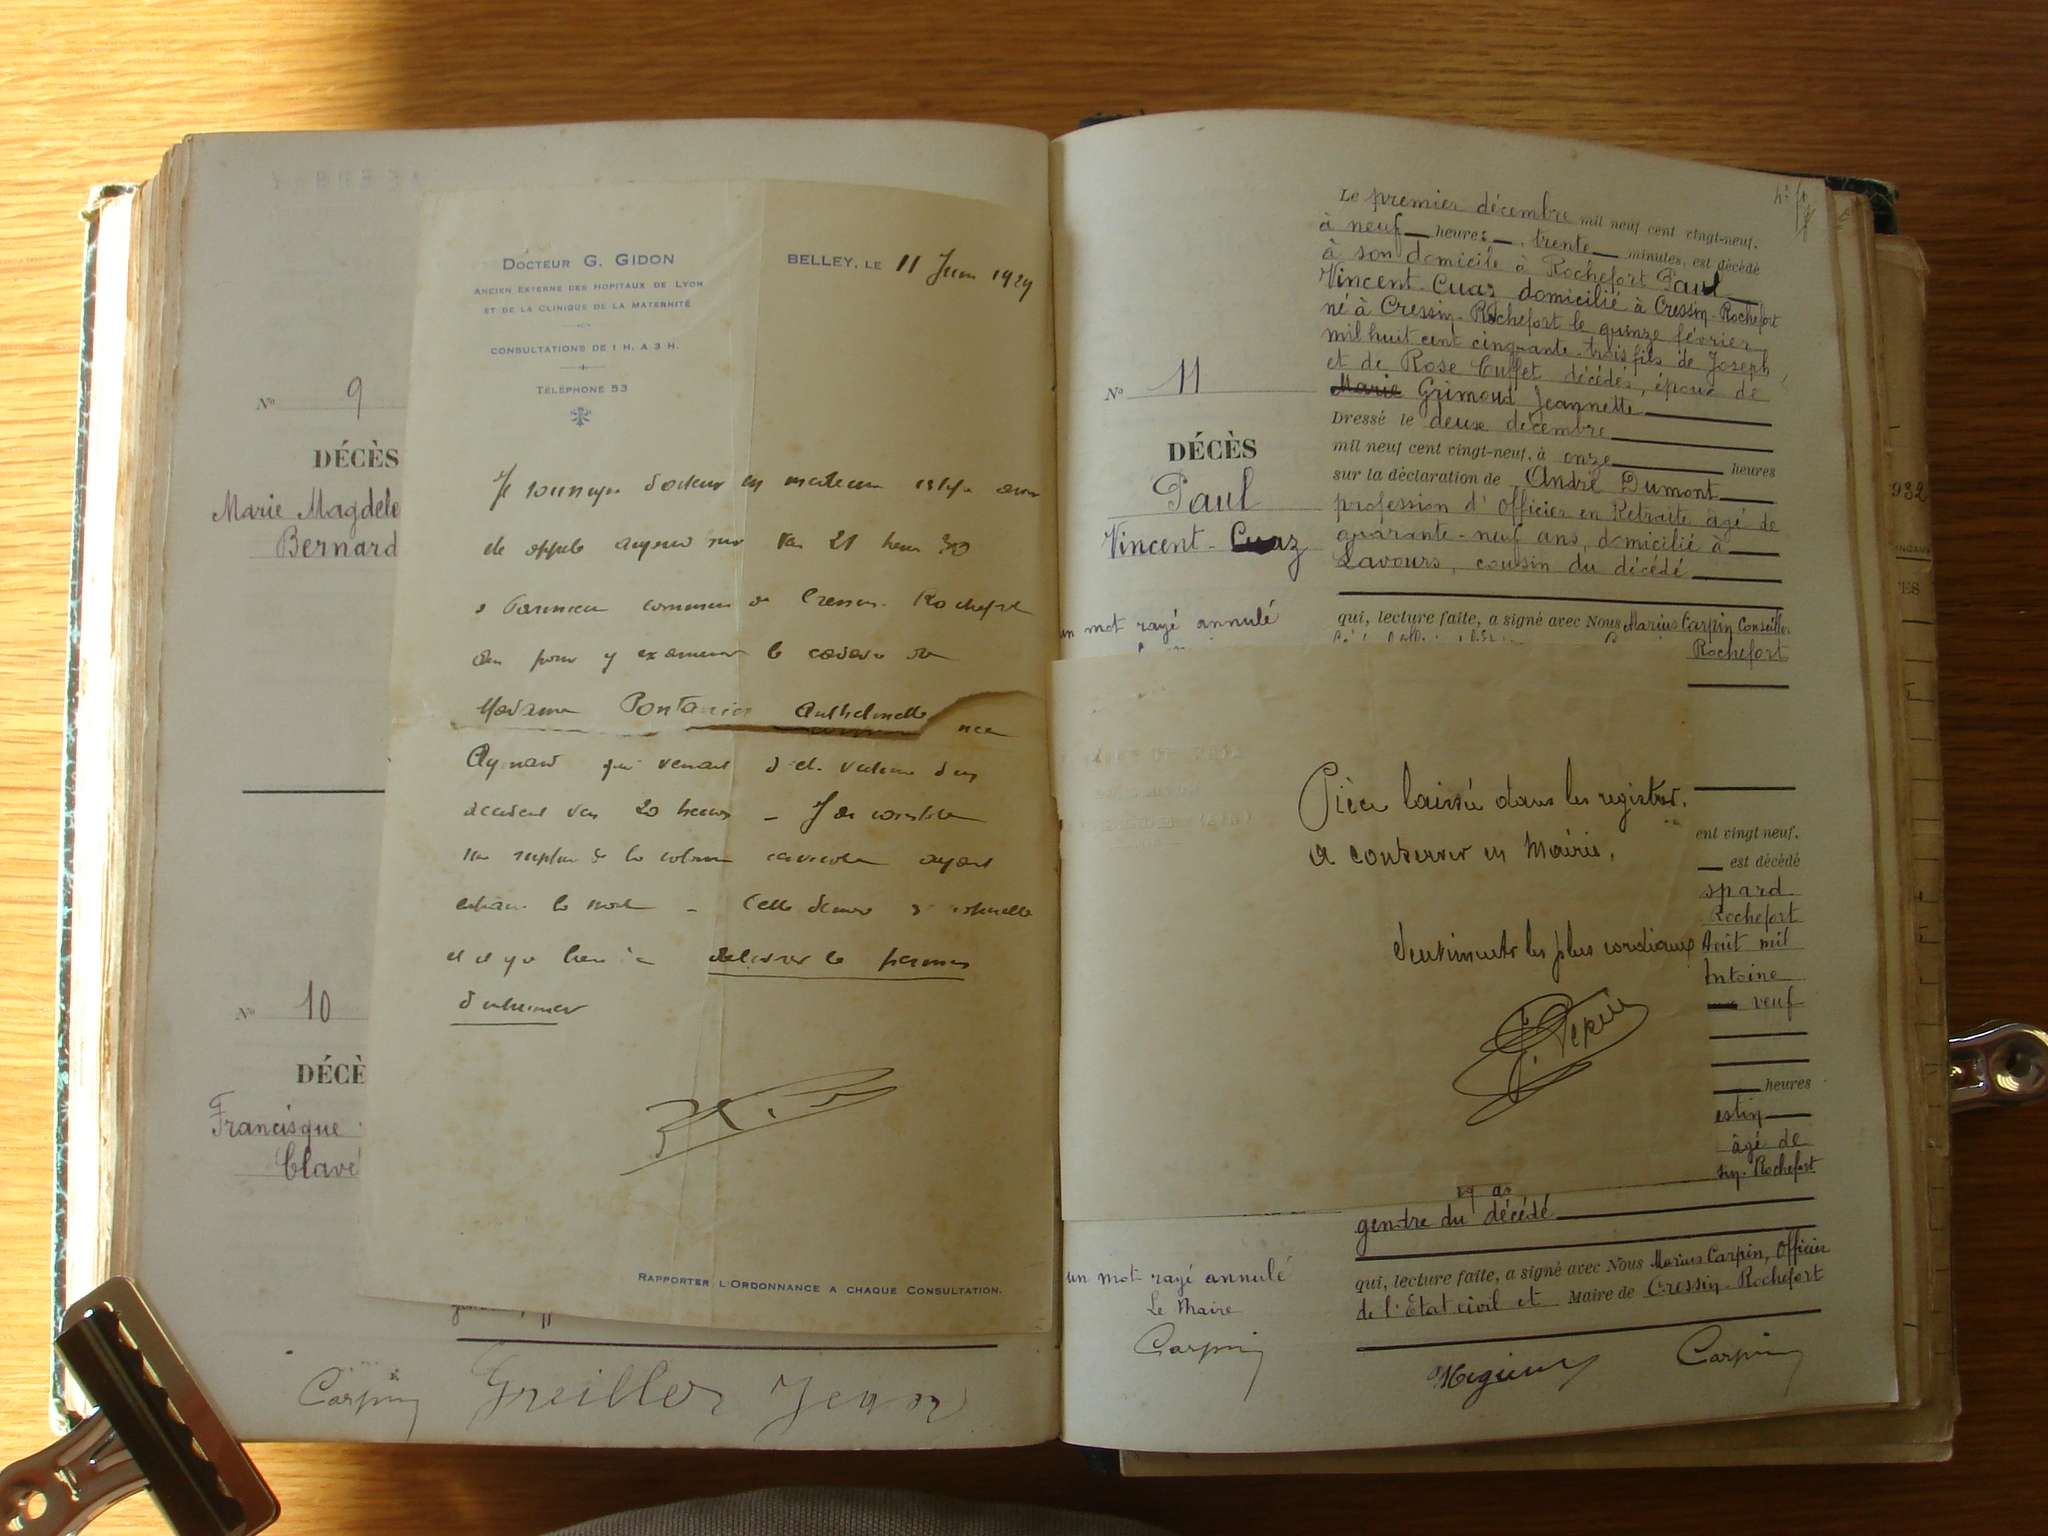 N° 9
DÉCÈS
Marie Magdele
Bernard
N° 10
DÉCÈ
Francisque
Clavé
DOCTEUR G. GIDON
ANCIEN EXTERNE DES HOPITAUX DE LYON
ET DE LA CLINIQUE DE LA MATERNITÉ
CONSULTATIONS DE 1 H. A 3 H.
TÉLÉPHONE 53
BELLEY, LE 11 Juin 1929
Je soussigné docteur en médecine certifie avoir
été appelé aujourd'hui vers 21 heures 30
à commune de Cressin-Rochefort
Ain pour y examiner le cadavre de
Madame Pontanier Anthelmette née
Aynard qui venait d'être victime d'un
accident vers 20 heures - J'ai constaté
une rupture de la colonne cervicale ayant
entrainé la mort - Cette dernière
et il y a lieu de délivrer le permis
d'inhumer
RAPPORTER L'ORDONNANCE A CHAQUE CONSULTATION.
Carpin Greiller Jean
Le premier décembre mil neuf cent vingt-neuf,
à neuf heures, trente minutes, est décédé
à son domicile à Rochefort Paul
Vincent-Cuaz domicilié à Cressin-Rochefort
né à Cressin-Rochefort le quinze février
mil huit cent cinquante-trois fils de Joseph
et de Rose Cuffet décédés, époux de
Marie Grimoud Jeannette
Dressé le deux décembre
mil neuf cent vingt-neuf, à onze heures
sur la déclaration de André Dumont
profession d'Officier en Retraite âgé de
quarante-neuf ans, domicilié à
Lavours, cousin du décédé
qui, lecture faite, a signé avec Nous Marius Carpin Conseiller
Rochefort
N° 11
DÉCÈS
Paul
Vincent-Cuaz
un mot rayé annulé
Pièce laissée dans les registres.
A conserver en Mairie.
Sentiments les plus cordiaux
ent vingt-neuf,
est décédé
spard
Rochefort
Août mil
Antoine
veuf
heures
estin
âgé de
sin-Rochefort
gendre du décédé
qui, lecture faite, a signé avec Nous Marius Carpin, Officier
de l'Etat civil et Maire de Cressin-Rochefort
un mot rayé annulé
Le Maire
Carpin
Carpin
932
ES